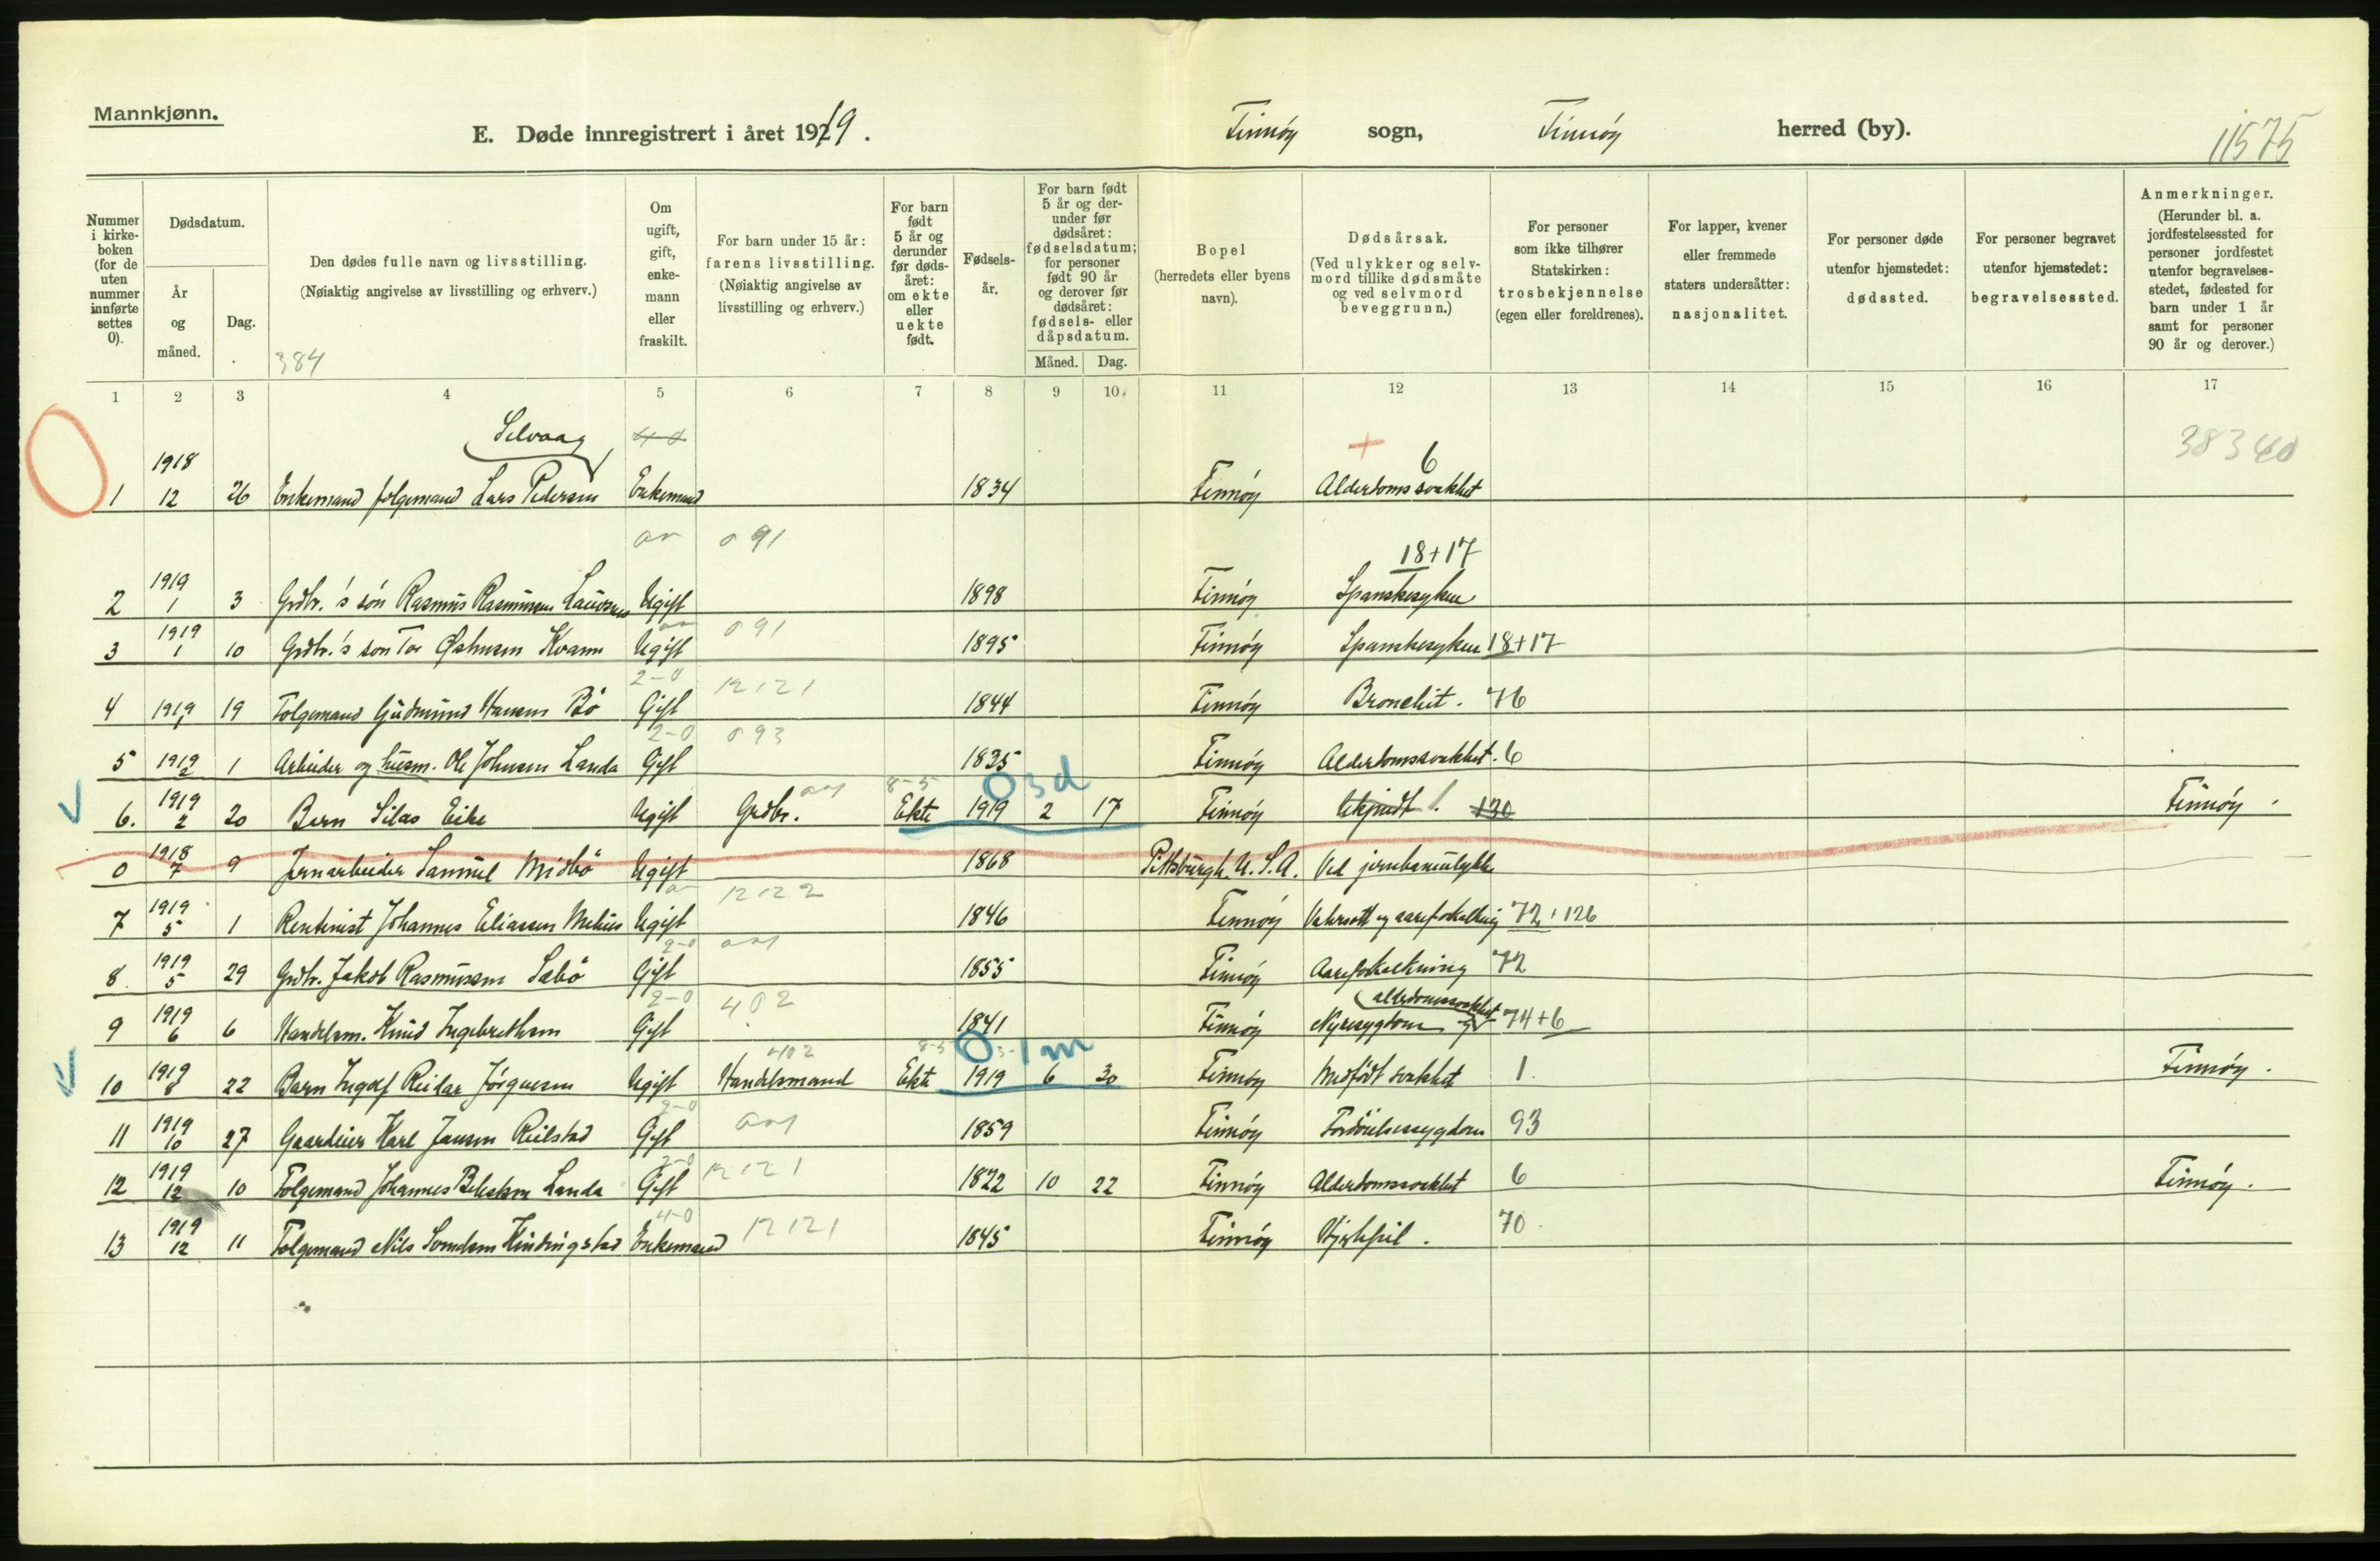 Mannkjønn.
E. Døde innregistrert i året 1919. Finnöy sogn, Finnöy herred (by).
11575
Nummer i kirke-boken (for de uten nummer innførte settes 0).
Dødsdatum.
År og måned.
Dag.
Den dødes fulle navn og livsstilling.
(Nøiaktig angivelse av livsstilling og erhverv.)
384
Om ugift, gift, enke-mann eller fraskilt.
For barn under 15 år: farens livsstilling. (Nøiaktig angivelse av livsstilling og erhverv.)
For barn født 5 år og derunder før døds-året: om ekte eller uekte født.
Fødsels-år.
For barn født 5 år og der-under før dødsåret: fødselsdatum; for personer født 90 år og derover før dødsåret: fødsels- eller dåpsdatum.
Måned. Dag.
Bopel (herredets eller byens navn).
Dødsårsak. (Ved ulykker og selv-mord tillike dødsmåte og ved selvmord beveggrunn.)
For personer som ikke tilhører Statskirken: trosbekjennelse (egen eller foreldrenes).
For lapper, kvener eller fremmede staters undersåtter: nasjonalitet.
For personer døde utenfor hjemstedet: dødssted.
For personer begravet utenfor hjemstedet: begravelsessted.
Anmerkninger. (Herunder bl. a. jordfestelsessted for personer jordfestet utenfor begravelses-stedet, fødested for barn under 1 år samt for personer 90 år og derover.)
1 2 3 4 5 6 7 8 9 10. 11 12 13 14 15 16 17
Selvaag 4-0 + 6 38340
1 1918 12 26 Enkemand folgemand Lars Pedersen Enkemand 1834 Finnöy Alderdomssvakhet
091 18+17
2 1919 1 3 Grdbr.'s sön Rasmus Rasmussen Ugift 1898 Finnöy Spanskesyken
091
3 1919 1 10 Grdbr.'s son Tor Kvame Ugift 1895 Finnöy Spanskesyken 18+17
2-0 12121
4 1919 1 19 Folgemand Gudmund Hansen Bö Gift 1844 Finnöy Bronchit. 76
2-0 093
5 1919 2 1 Arbeider og husm. Ole Johnsen Landa Gift 1835 Finnöy Alderdomssvakhet. 6
8-5 0 3d
6. 1919 2 20 Barn Silas Eike Ugift Grdbr. Ekte 1919 2 17 Finnöy Ukjendt 1 130 Finnöy.
0 1918 7 9 Jernarbeider Samuel Midbö Ugift 1868 Pittsburgh. U.S.A. Ved jernbaneulykke
12122
7 1919 5 1 Rentenist Johannes Eliassen Ugift 1846 Finnöy Vatersott og aareforkalkning 72+126
2-0
8. 1919 5 29 Grdbr. Jakob Rasmussen Sæbö Gift 1855 Finnöy Aareforkalkning 72
2-0 402
9 1919 6 6 Handelsm. Knud Ingebrethsen Gift 1841 Finnöy Nyresygdom og alderdomssvakhet 74+6
402 8-5 0 3-1m
10 1919 8 22 Barn Ingolf Reidar Jörgensen Ugift Handelsmand Ekte 1919 6 30 Finnöy Medfödt svakhet 1. Finnöy.
2-0
11 1919 10 27 Gaardeier Karl Jansen Reilstad Gift 1859 Finnöy Fordöielsessygdom 93
2-0 12121
12 1919 12 10 Folgemand Johannes Landa Gift 1822 10 22 Finnöy Alderdomssvakhet 6 Finnöy.
4-0 12121
13 1919 12 11 Folgemand Nils Kindingstad Enkemand 1845 Finnöy Hjertefeil. 70